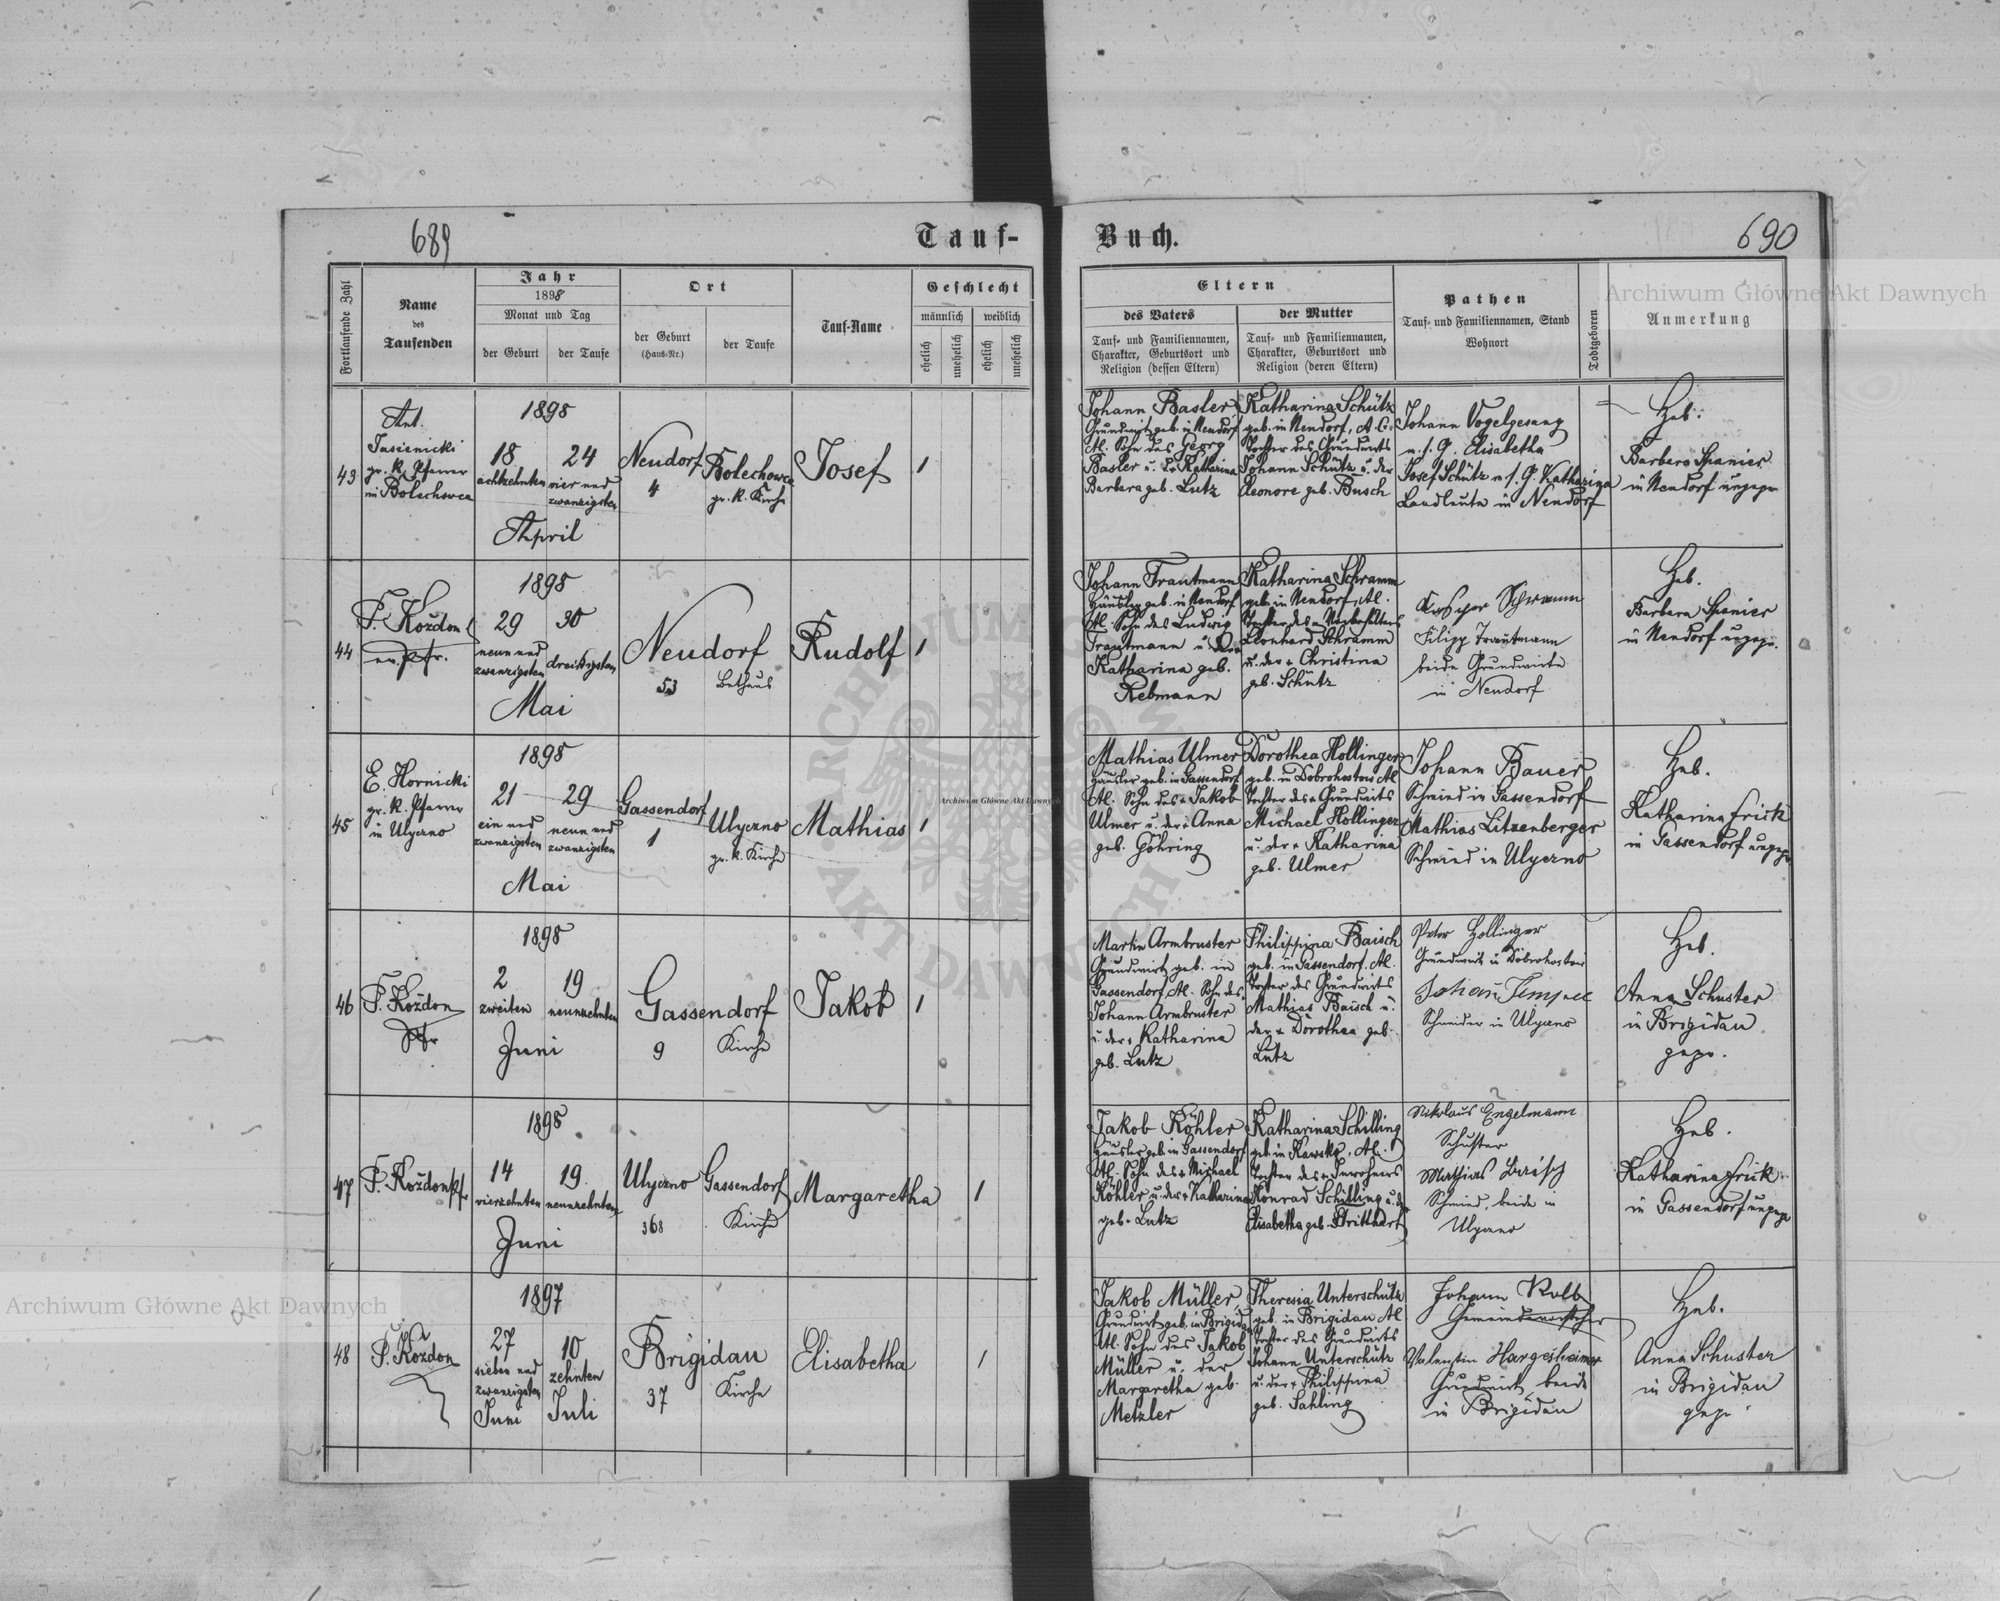 689
Tauf-
Buch.
690
Fortlaufende Zahl
Name
des
Taufenden
Jahr
1898
Monat und Tag
der Geburt
der Taufe
Ort
der Geburt
(Haus-Nr.)
der Taufe
Tauf-Name
Geschlecht
männlich
weiblich
ehelich
unehelich
ehelich
unehelich
Eltern
des Vaters
Tauf- und Familiennamen,
Charakter, Geburtsort und
Religion (dessen Eltern)
der Mutter
Tauf- und Familiennamen,
Charakter, Geburtsort und
Religion (deren Eltern)
Pathen
Tauf- und Familiennamen, Stand
Wohnort
Todtgeboren
Anmerkung
43
Ant.
Jasienicki
gr. k. Pfarrer
in Bolechowce
1898
18
achtzehnten
24
vier und
zwanzigsten
April
Neudorf
4
Bolechowce
gr. k. Kirche
Josef
1
Johann Basler
Grundwirt geb. in Neudorf
A.C. Sohn des Georg
Basler u. der Katharina
Barbara geb. Lutz
Katharina Schütz
geb. in Neudorf, A.C.
Tochter des Grundwirts
Johann Schütz u. der
Eleonore geb. Busch
Johann Vogelgesang
u. s. G. Elisabetha
Josef Schütz u. s. G. Katharina
Landleute in Neudorf
Heb.
Barbara Spanier
in Neudorf ungepr
44
F. Kozdon
ev. Pfr.
1898
29
neun und
zwanzigsten
30
dreißigsten
Mai
Neudorf
53
Bethaus
Rudolf
1
Johann Trautmann
Häusler geb. in Neudorf
A.C. Sohn des Ludwig
Trautmann u. der
Katharina geb.
Rebmann
Katharina Schramm
geb. in Neudorf, A.C.
Leonhard Schramm
u. der + Christina
geb. Schütz
Kaspar Schramm
Filipp Trautmann
beide Grundwirte
in Neudorf
Heb.
Barbara Spanier
in Neudorf ungepr.
45
E. Hornicki
gr. k. Pfarrer
in Ulyczno
1898
21
ein und
zwanzigsten
29
neun und
zwanzigsten
Mai
Gassendorf
1
Ulyczno
gr. k. Kirche
Mathias
1
Mathias Ulmer
Häusler geb. in Gassendorf
A.C. Sohn des + Jakob
Ulmer u. der + Anna
geb. Göhring
Dorothea Hollinger
geb. in Dobrohostow A.C.
Tochter des + Grundwirts
Michael Hollinger
u. der + Katharina
geb. Ulmer
Johann Bauer
Schmied in Gassendorf
Mathias Litzenberger
Schmied in Ulyczno
Heb.
Katharina Frick
in Gassendorf ungepr
46
F. Kozdon
Pfr
1898
2
zweiten
19
neunzehnten
Juni
Gassendorf
9
Kirche
Jakob
1
Martin Armbruster
Grundwirt geb. in
Gassendorf, A.C. Sohn des
Johann Armbruster
u. der + Katharina
geb. Lutz
Philippina Baisch
geb. in Gassendorf, A.C.
Tochter des Grundwirts
Mathias Baisch u.
der + Dorothea geb.
Lutz
Peter Hollinger
Grundwirt in Dobrohostow
Johann Tempel
Schneider in Ulyczno
Heb.
Anna Schuster
in Brigidau
gepr.
47
F. Kozdon Pf
1898
14
vierzehnten
19.
neunzehnten
Juni
Ulyczno
368
Gassendorf
Kirche
Margaretha
1
Jakob Köhler
Häusler geb. in Gassendorf
A.C. Sohn des + Michael
Köhler u. der + Katharina
geb. Lutz
Katharina Schilling
geb. in Kawsko, A.C.
Tochter des + Inwohners
Konrad Schilling u. der
Elisabetha geb. Stritthart
Nikolaus Engelmann
Schuster
Mathias Baisch
Schmied, beide in
Ulyczno
Heb.
Katharina Frick
in Gassendorf ungepr
48
F. Kozdon
1897
27
sieben und
zwanzigsten
Juni
10
zehnten
Juli
Brigidau
37
Kirche
Elisabetha
1
Jakob Müller,
Grundwirt geb. in Brigidau
A.C. Sohn des Jakob
Müller u. der
Margaretha geb.
Metzler
Theresia Unterschütz
geb. in Brigidau A.C.
Tochter des Grundwirts
Johann Unterschütz
u. der + Philippina
geb. Sahling
Johann Kolb
Gemeindevorsteher
Valentin Hargesheimer
Grundwirt, beide
in Brigidau
Heb.
Anna Schuster
in Brigidau
gepr
Archiwum Główne Akt Dawnych
Archiwum Główne Akt Dawnych
Archiwum Główne Akt Dawnych
ARCHIWUM GŁÓWNE AKT DAWNYCH